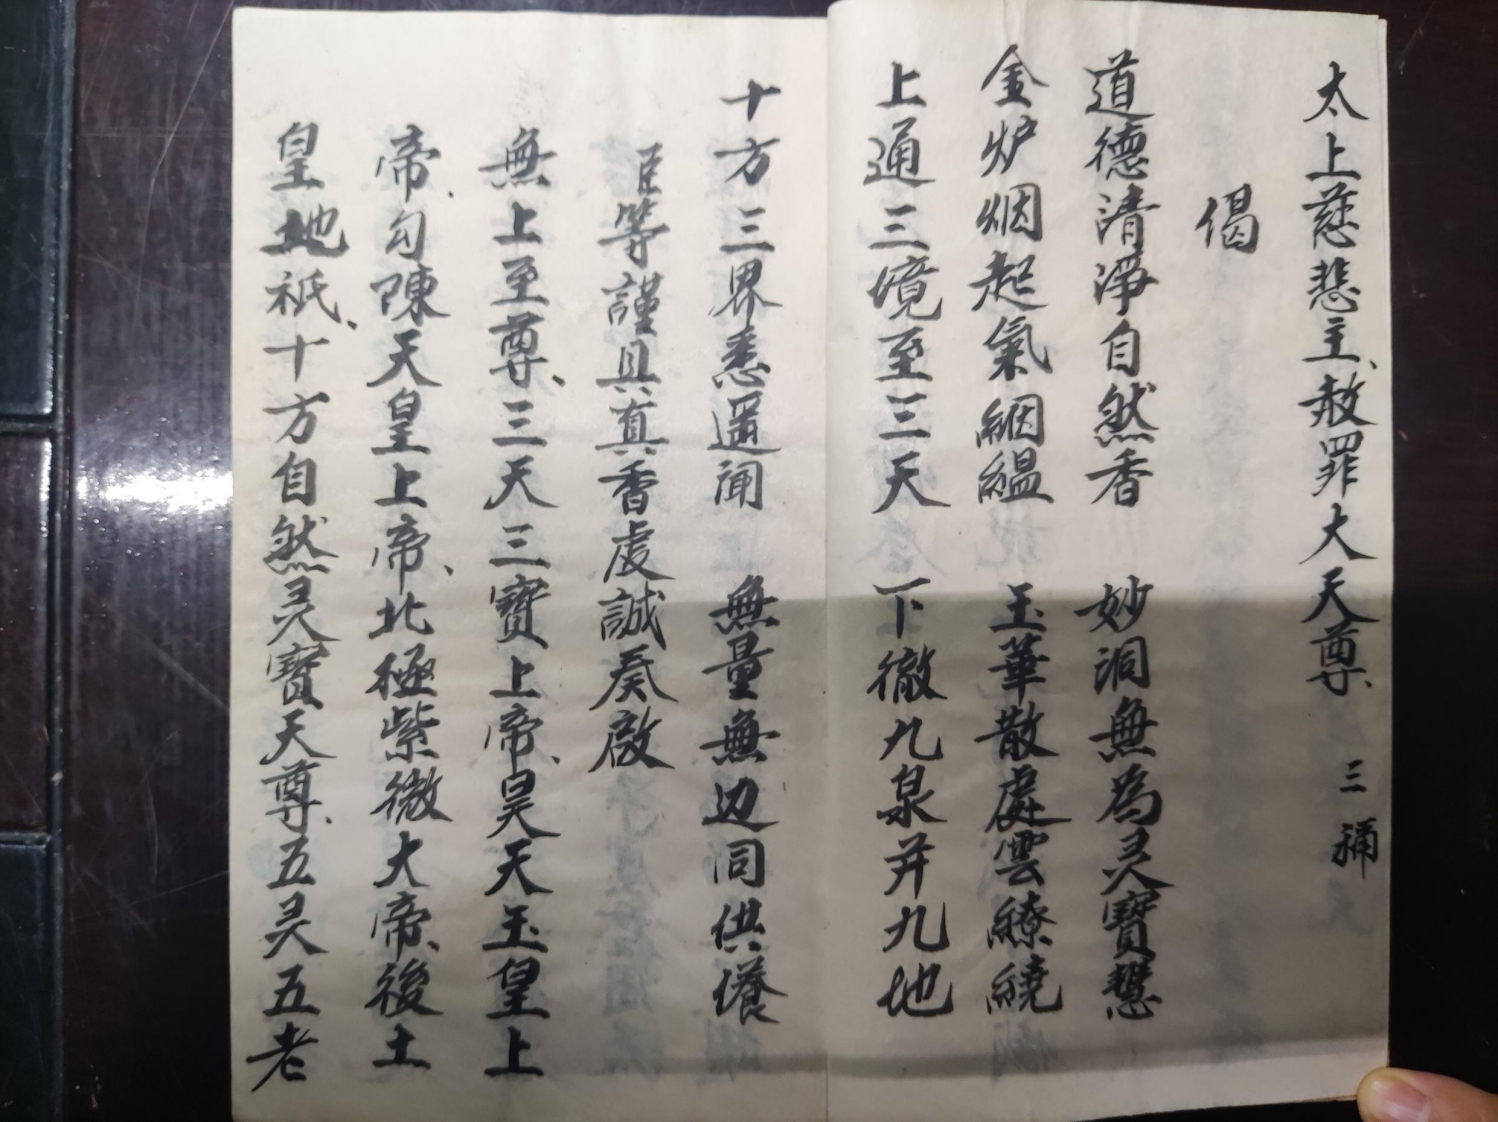 太上慈悲主、赦罪大天尊、 三稱
偈
道德清淨自然香 妙洞無為灵寶慧
金炉烟起氣絪緼 玉華散處雲繚繞
上通三境至三天 下徹九泉并九地
十方三界悉遥聞 無量無边同供養
臣等謹具真香虔誠奏啟
無上至尊、三天三寶上帝、昊天玉皇上
帝、勾陳天皇上帝、北極紫微大帝、後土
皇地祇、十方自然灵寶天尊、五灵五老